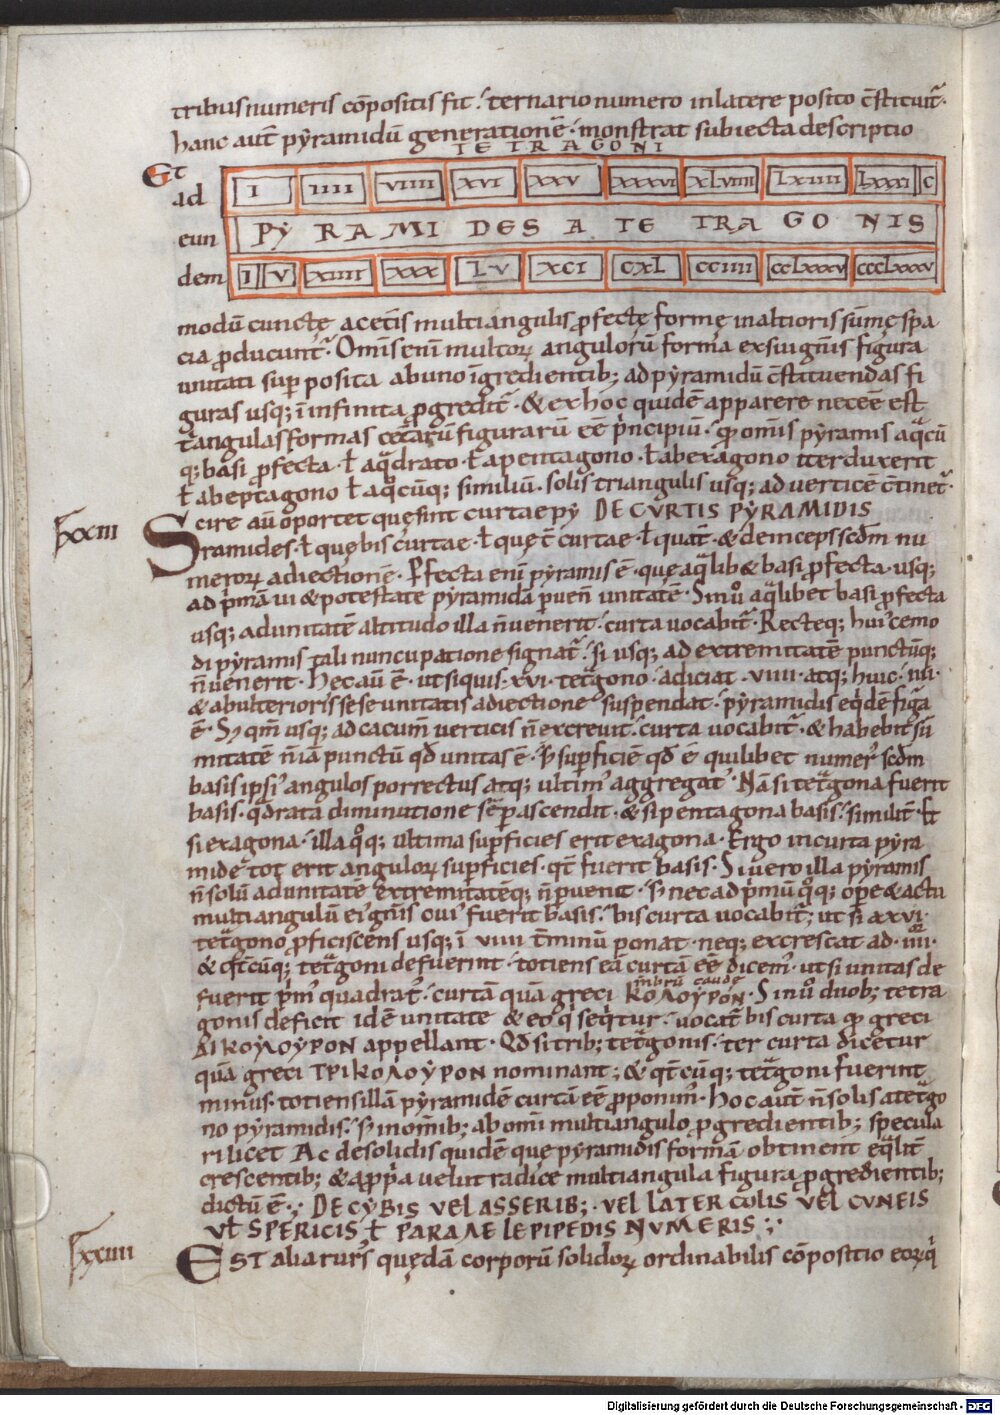 tribus numeris cōpositis fit. ternario numero in latere posito c̄stituit᷑.
hanc aut̄ pẏramidū generationē. monstrat subiecta descriptio
TETRAGONI
Et
ad
eun
dem
I IIII VIIII XVI XXV XXXVI XLVIIII LXIIII LXXXI C
PẎRAMIDES A TETRAGONIS
I V XIIII XXX LV XCI CXL CCIIII CCLXXXV CCCLXXXV
modū cunctę a cet̄is multiangulis ꝓfectę formę in altioris sūmę spa
cia ꝓducunt᷑. Om̄is eni multoꝝ angulorū forma ex sui gn̄is figura
unitati sup posita ab uno īgredientib; ad pẏramidū c̄stituendas fi
guras usq; ī infinita ꝓgredit᷑. & ex hoc quidē apparere necēe est
t̄angulas formas cet̄arū figurarū ēe p̄ncipiū. qꝫ om̄is pẏramis a q̄cū
q; basi ꝓfecta. ł a q̄drato. ł a pentagono. ł ab exagono
ł ab eptagono ł a q̊cūq; similiū. solis triangulis usq; ad verticē c̄tinet᷑.
Scire aū oportet quę sint curtae pẏ DE CVRTIS PẎRAMIDIS
ramides. ł quę bis curtae. ł quę t̄ curtae. ł quat̄. & deinceps scd̄m nu
meroꝝ adiectionē. Pfecta eni pẏramis ē. quę a q̄lib& basi ꝓfecta. usq;
ad p̄mā ui & potestate pẏramidā puen̄ unitatē. Sin ů a q̄libet basi ꝓfecta
usq; ad unitatē altitudo illa n̄ venerit. curta uocabit᷑. Recteq; hui᷒cemo
di pẏramis tali nuncupatione signat᷑. si usq; ad extremitatē punctūq;
n̄ venerit. Hec aū ē. ut si quis. xvi. tet̄gono. adiciat. viiii. atq; huic. iiii.
& ab ulterioris sese unitatis adiectione suspendat. pẏramidis eq̇dē figa
ē. Sꝫ qm̄ usq; ad cacum̄ verticis n̄ excreuit. curta uocabit᷑. & habebit sū
mitatē n̄ iā punctū qd̄ unitas ē. sꝫ supficiē qd̄ ē quilibet numer᷒ scd̄m
basis ipsi᷒ angulos porrectus atq; ultim᷒ aggregat᷒ Nā si tet̄gona fuerit
basis. q̄drata diminutione sēp ascendit. & si pentagona basis. similit̄.
si exagona. illa q̊q; ultima supficies erit exagona. Ergo in curta pẏra
mide tot erit anguloꝝ supficies. qt̄ fuerit basis. Si vero illa pẏramis
n̄ solū ad unitatē extremitatēq; n̄ puenit. sꝫ nec ad p̄mū q̊q; ope & actu
multiangulū ei᷒ gn̄is cui᷒ fuerit basis. bis curta uocabit᷑; ut si a xvi.
tet̄gono ꝓficiscens usq; ī viiii t̄minū ponat. neq; excrescat ad. iiii.
& qt̄cūq; tet̄goni defuerint. totiens eā curtā ēe dicem᷒. ut si unitas de
fuerit p̄m᷒ quadrat᷒. curtā quā greci ΚΟΛΟΎΡΟΝ. Sin ů duob; tetra
gonis deficit idē unitate & eo q̇ seq̇tur. uocat̄ bis curta qꝫ greci
ΔΙΚΟΥΛΟΥΡΟΝ appellant. Qd̄ si trib; tet̄gonis. ter curta dicetur
quā greci ΤΡΙΚΟΛΟΥΡΟΝ nominant; & qt̄cūq; tet̄goni fuerint
minus. totiens illā pẏramidē curtā ēe ꝓponim᷒. Hoc aut̄ n̄ solis a tet̄go
no pẏramidis. sꝫ in om̄ib; ab omi multiangulo ꝓgredientib; specula
ri licet Ac de solidis quidē que pẏramidis formā obtinent eq̄lit̄
crescentib; & a pp̄a velut radice multiangula figura ꝓgredientib;
dictū ē. DE CYBIS VEL ASSERIB; VEL LATERCOLIS VEL CVNEIS
VŁ SPERICIS Ł PARALELEPIPEDIS NVMERIS
EST alia rurs᷒ quędā corporū solidoꝝ ordinabilis cōpositio eoꝝ q̇